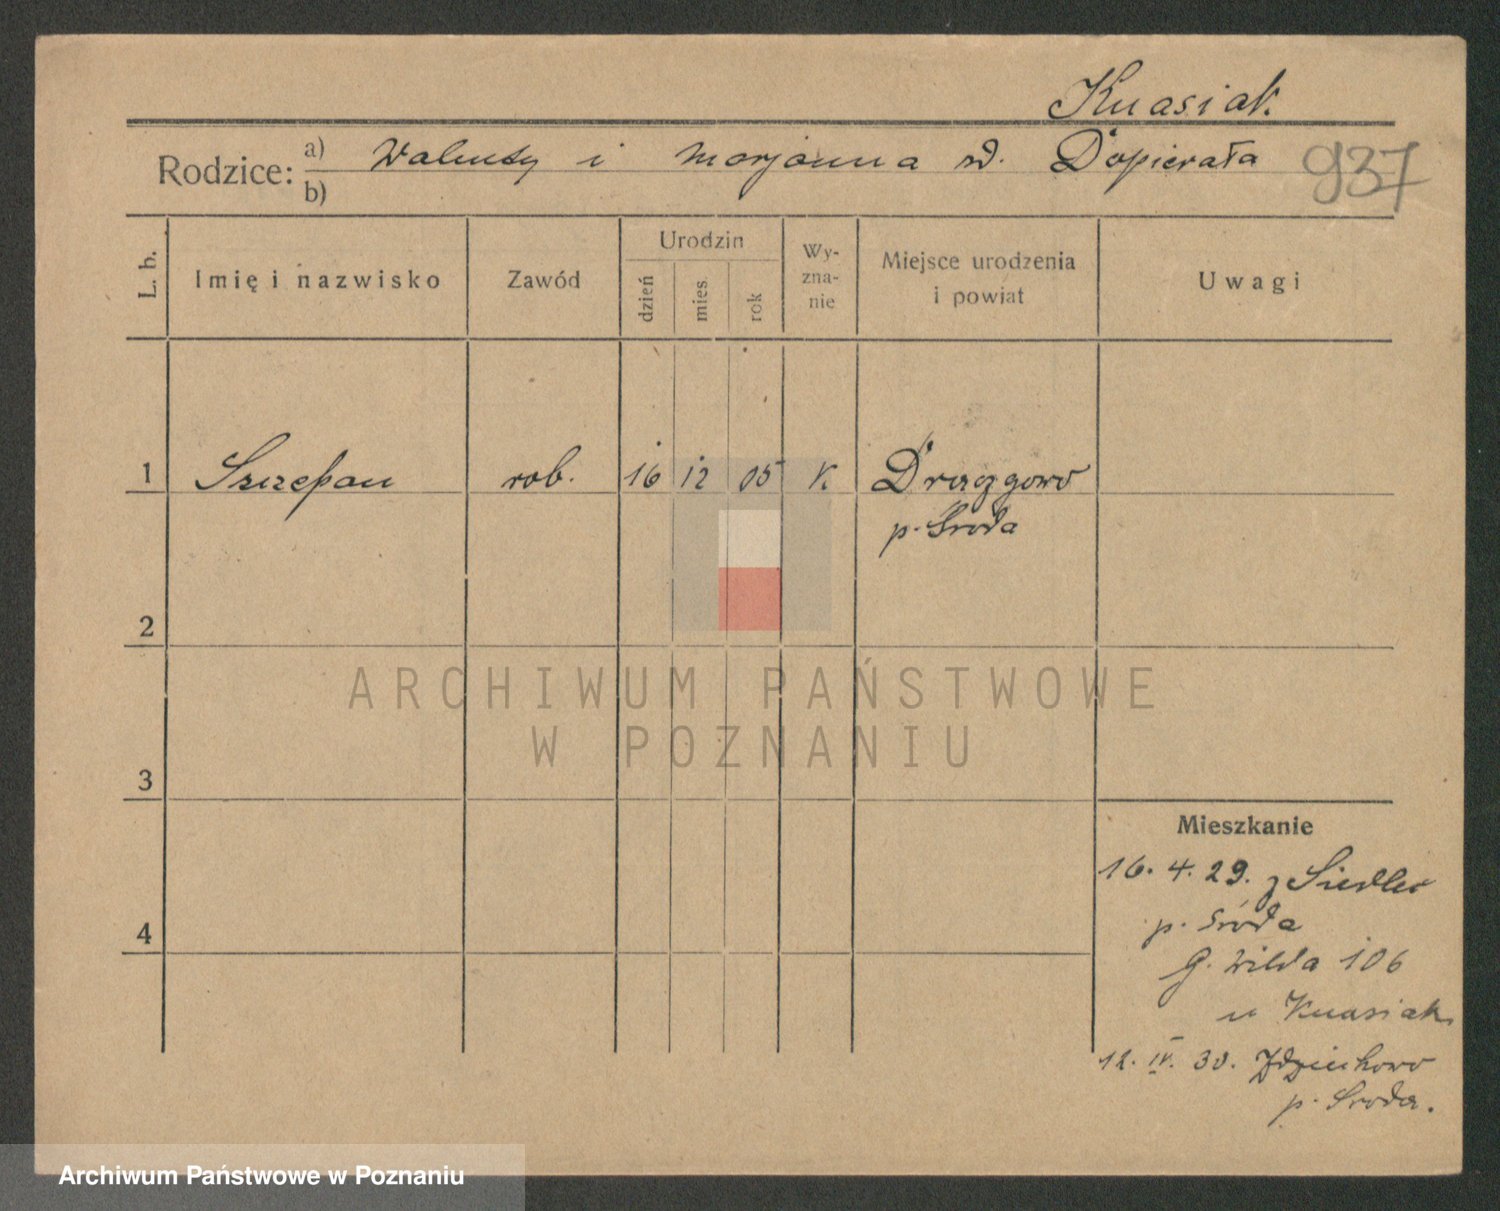 Kuasiak
Rodzice: a) Walenty i Marjanna zd. Dopierała 937
b)
L. b. Imię i nazwisko Zawód Urodzin dzień mies rok Wy-zna-nie Miejsce urodzenia i powiat Uwagi
1 Szczepan rob. 16 12 05 k.
p. Środa
2
ARCHIWUM PAŃSTWOWE
W POZNANIU
3
Mieszkanie
16. 4. 29. z Siedlec
p. Środa
4
G. Wilda 106
u Kuasiak
12. IV. 30.
p. Środa.
Archiwum Państwowe w Poznaniu